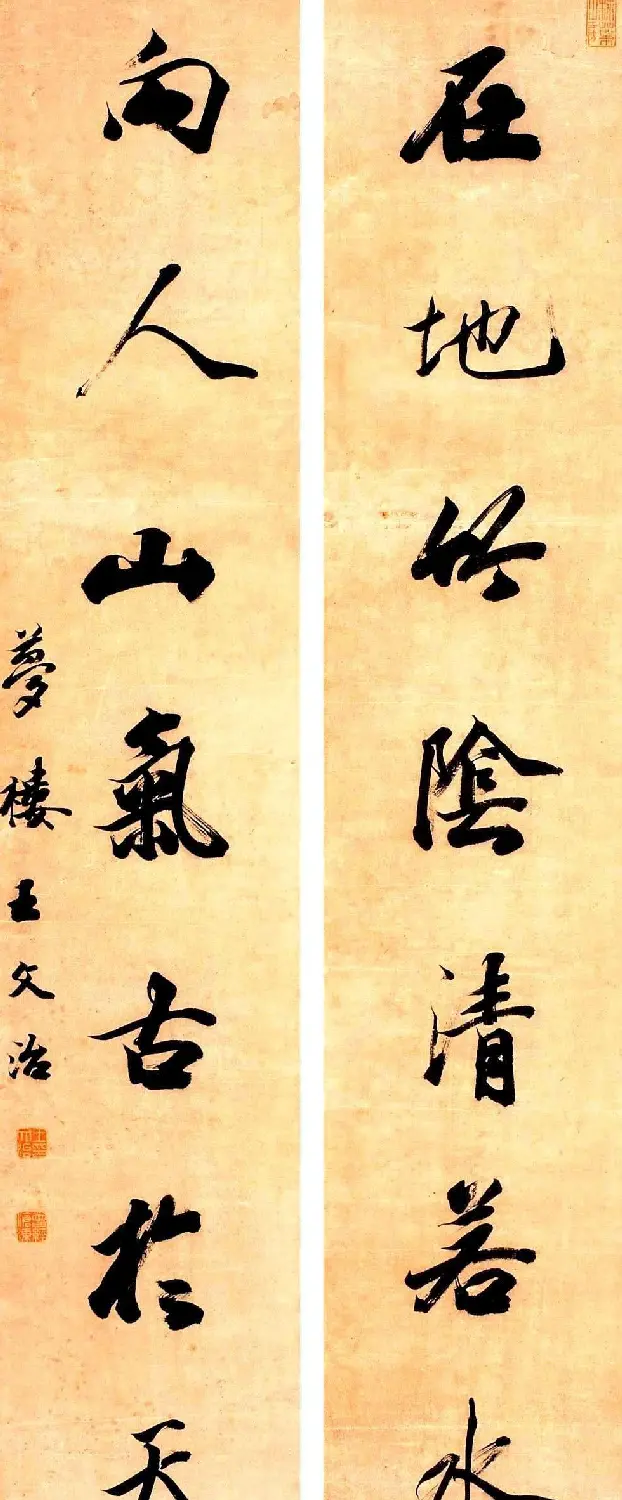 在地竹陰清若水
向人山氣古於天
夢樓王文治